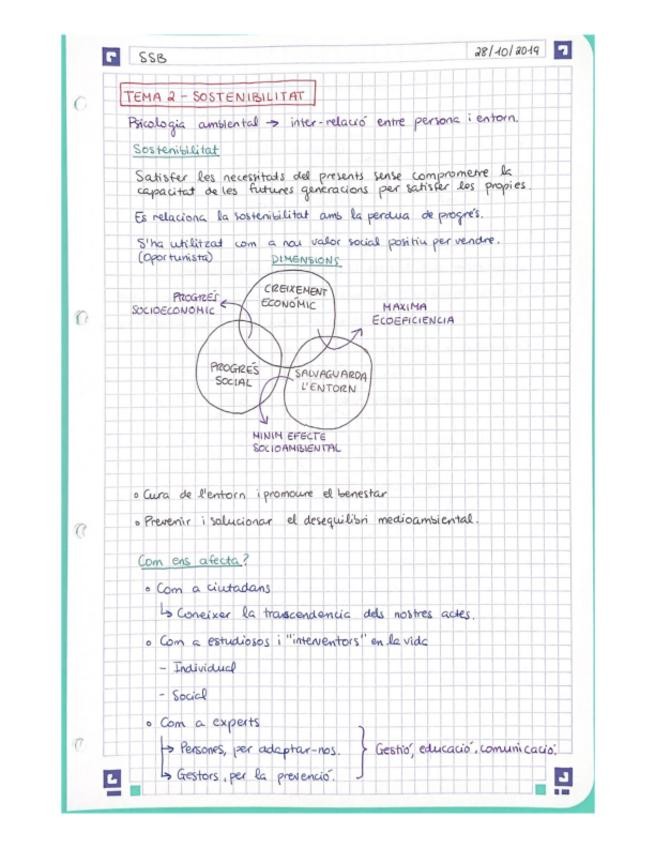 SSB
28/10/2019
TEMA 2 - SOSTENIBILITAT
Psicologia ambiental → inter-relació entre persona i entorn.
Sostenibilitat
Satisfer les necessitats del presents sense comprometre la
capacitat de les futures generacions per satisfer les propies.
Es relaciona la sostenibilitat amb la perdua de progrés.
S'ha utilitzat com a nou valor social positiu per vendre.
(Oportunista)
DIMENSIONS
CREIXEMENT
ECONÓMIC
PROGRÉS
SOCIOECONÒMIC
MAXIMA
ECOEFICIENCIA
PROGRÉS
SOCIAL
SALVAGUARDA
L'ENTORN
MINIM EFECTE
SOCIOAMBIENTAL
Cura de l'entorn i promoure el benestar
Prevenir i solucionar el desequilibri medioambiental.
Com ens afecta?
Com a ciutadans
↳ Coneixer la trascendencia dels nostres actes.
Com a estudiosos i "interventors" en la vida
- Individual
- Social
Com a experts
↳ Persones, per adaptar-nos.
↳ Gestors, per la prevenció.
Gestió, educació, comunicació.